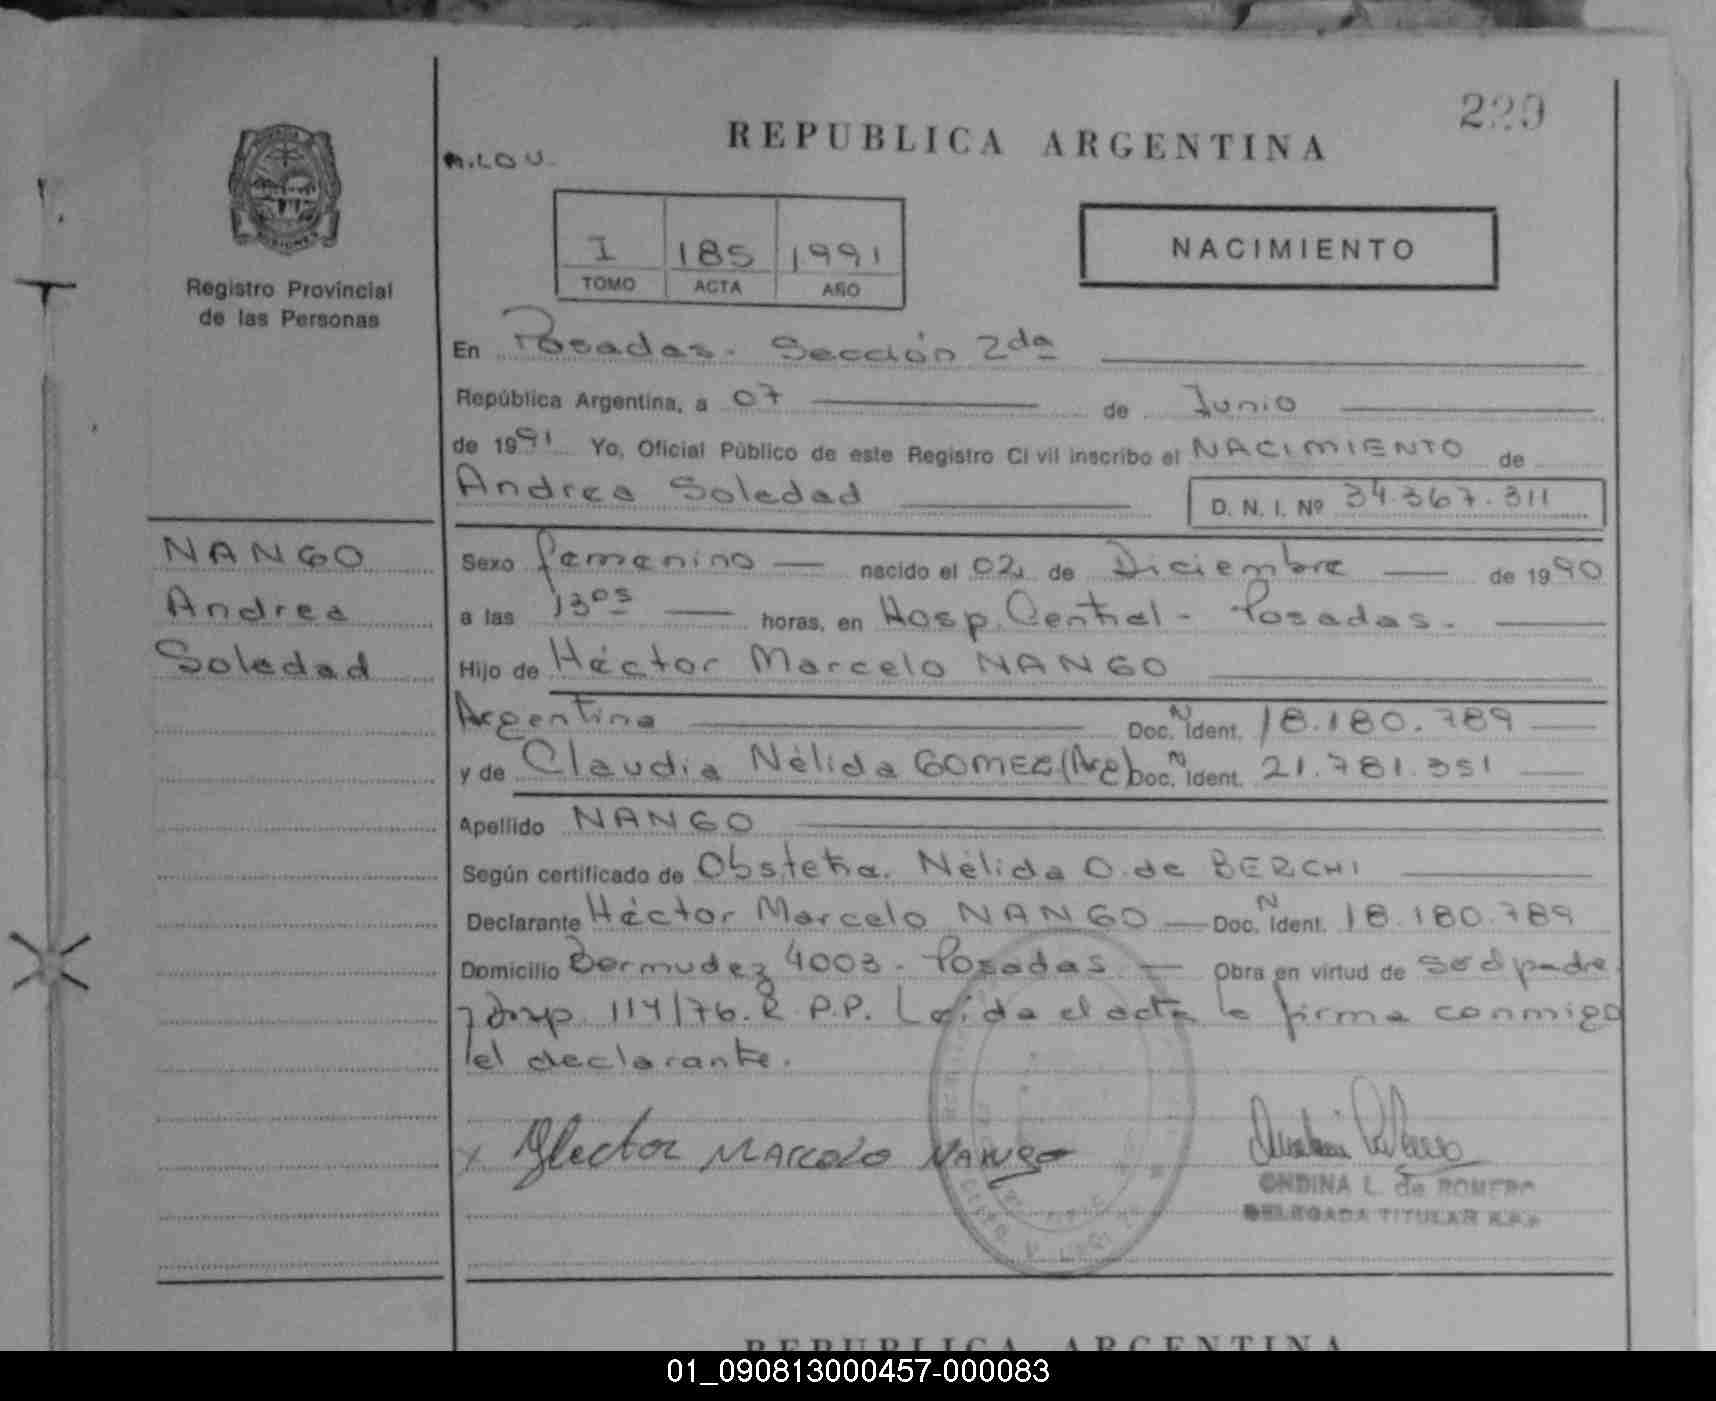 229
REPUBLICA ARGENTINA
I 185 1991
TOMO ACTA AÑO
NACIMIENTO
Registro Provincial
de las Personas
En Posadas. Sección 2da
República Argentina, a 07 de Junio
de 1991 Yo, Oficial Público de este Registro Civil inscribo el NACIMIENTO de
Andrea Soledad D. N. I. Nº 34.367.311
NANGO
Andrea
Soledad
Sexo femenino nacido el 02 de Diciembre de 1990
a las 13os horas, en Hosp. Central - Posadas.
Hijo de Héctor Marcelo NANGO
Argentina Doc. N Ident. 18.180.789
y de Claudia Nélida GOMEZ (Arg) Doc. N Ident. 21.781.351
Apellido NANGO
Según certificado de Obstetra. Nélida O. de BERCHI
Declarante Héctor Marcelo NANGO Doc. N Ident. 18.180.789
Domicilio Bermudez 4003. Posadas. Obra en virtud de ser padre
y Disp. 114/76. R.P.P. Leída el acta la firma conmigo
el declarante.
x Hector MARCELO NANGO
ONDINA L. de ROMERO
DELEGADA TITULAR R.P.P.
REPUBLICA ARGENTINA
01_090813000457-000083